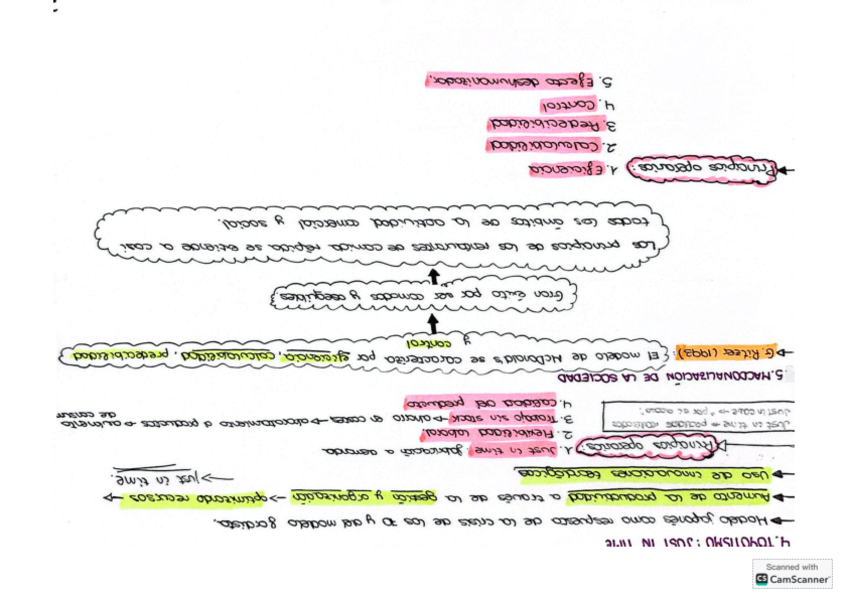 4. TOYOTISMO: JUST IN TIME
Modelo japonés como respuesta de la crisis de los 70 y del modelo fordista.
Aumento de la productividad a través de la de gestión y organización → optimizando recursos →
Just in time.
Uso de innovaciones tecnológicas
Principios operarios:
1. Just in time fabricación a demanda
2. Flexibilidad laboral
3. Trabajo sin stock → ahorro en costes → abaratamiento a productos → aumento
de consum
4. Calidad del producto
Just in time →
Just in case →
5. MACDONALIZACIÓN DE LA SOCIEDAD
G. Ritzer (1993): El modelo de McDonald's se caracteriza por eficiencia, calculabilidad, predecibilidad
y control
Gran éxito por ser comodos y asequibles.
Los principios de los restaurantes de comida rápida se extiende a casi
todos los ámbitos de la actividad comercial y social.
Principios operarios: 1. Eficiencia
2. Calculabilidad
3. Predecibilidad
4. Control
5. Efecto deshumanizador.
Scanned with
CS CamScanner